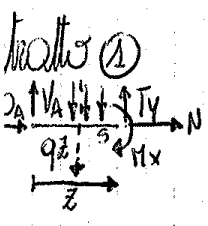 tratto ①
OA VA Ty N
qz s Mx
z